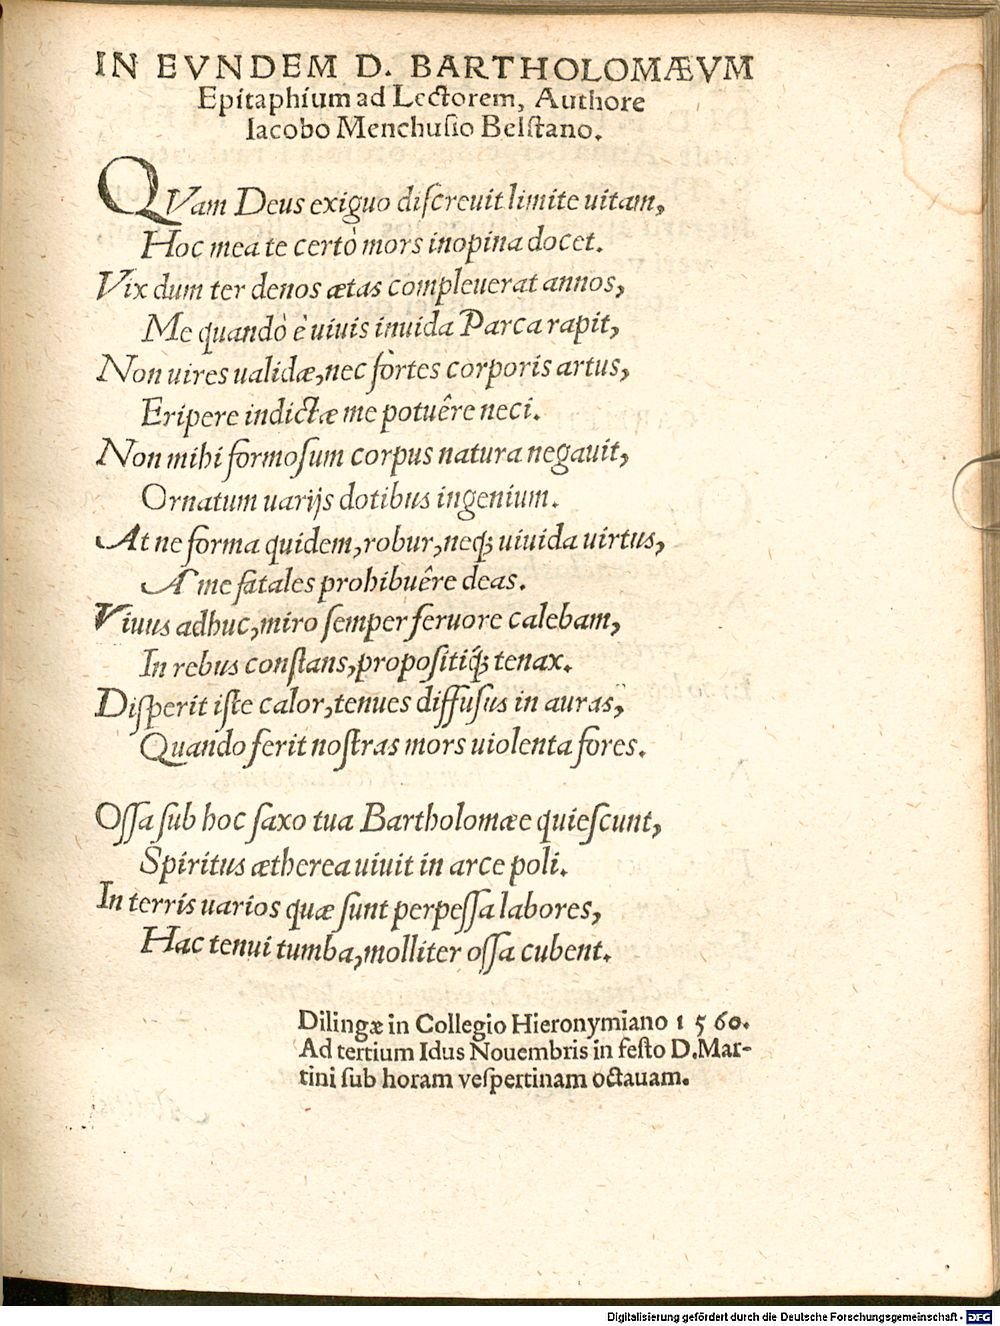 IN EVNDEM D. BARTHOLOMÆVM
Epitaphium ad Lectorem, Authore
Iacobo Menchusio Belstano.
QVam Deus exiguo discreuit limite uitam,
Hoc mea te certò mors inopina docet.
Vix dum ter denos ætas compleuerat annos,
Me quandò è uiuis inuida Parca rapit,
Non uires ualidæ, nec fortes corporis artus,
Eripere indictæ me potuêre neci.
Non mihi formosum corpus natura negauit,
Ornatum uarijs dotibus ingenium.
At ne forma quidem, robur, neq; uiuida uirtus,
A me fatales prohibuêre deas.
Viuus adhuc, miro semper feruore calebam,
In rebus constans, propositiq́; tenax.
Disperit iste calor, tenues diffusus in auras,
Quando ferit nostras mors uiolenta fores.
Ossa sub hoc saxo tua Bartholomæe quiescunt,
Spiritus ætherea uiuit in arce poli.
In terris uarios quæ sunt perpessa labores,
Hac tenui tumba, molliter ossa cubent.
Dilingæ in Collegio Hieronymiano 1560.
Ad tertium Idus Nouembris in festo D. Mar-
tini sub horam vespertinam octauam.
Digitalisierung gefördert durch die Deutsche Forschungsgemeinschaft - DFG